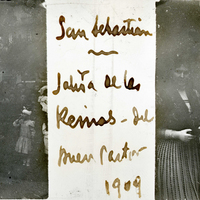 San Sebastián
Salida de las
Reinas - del
Buen Pastor
1909